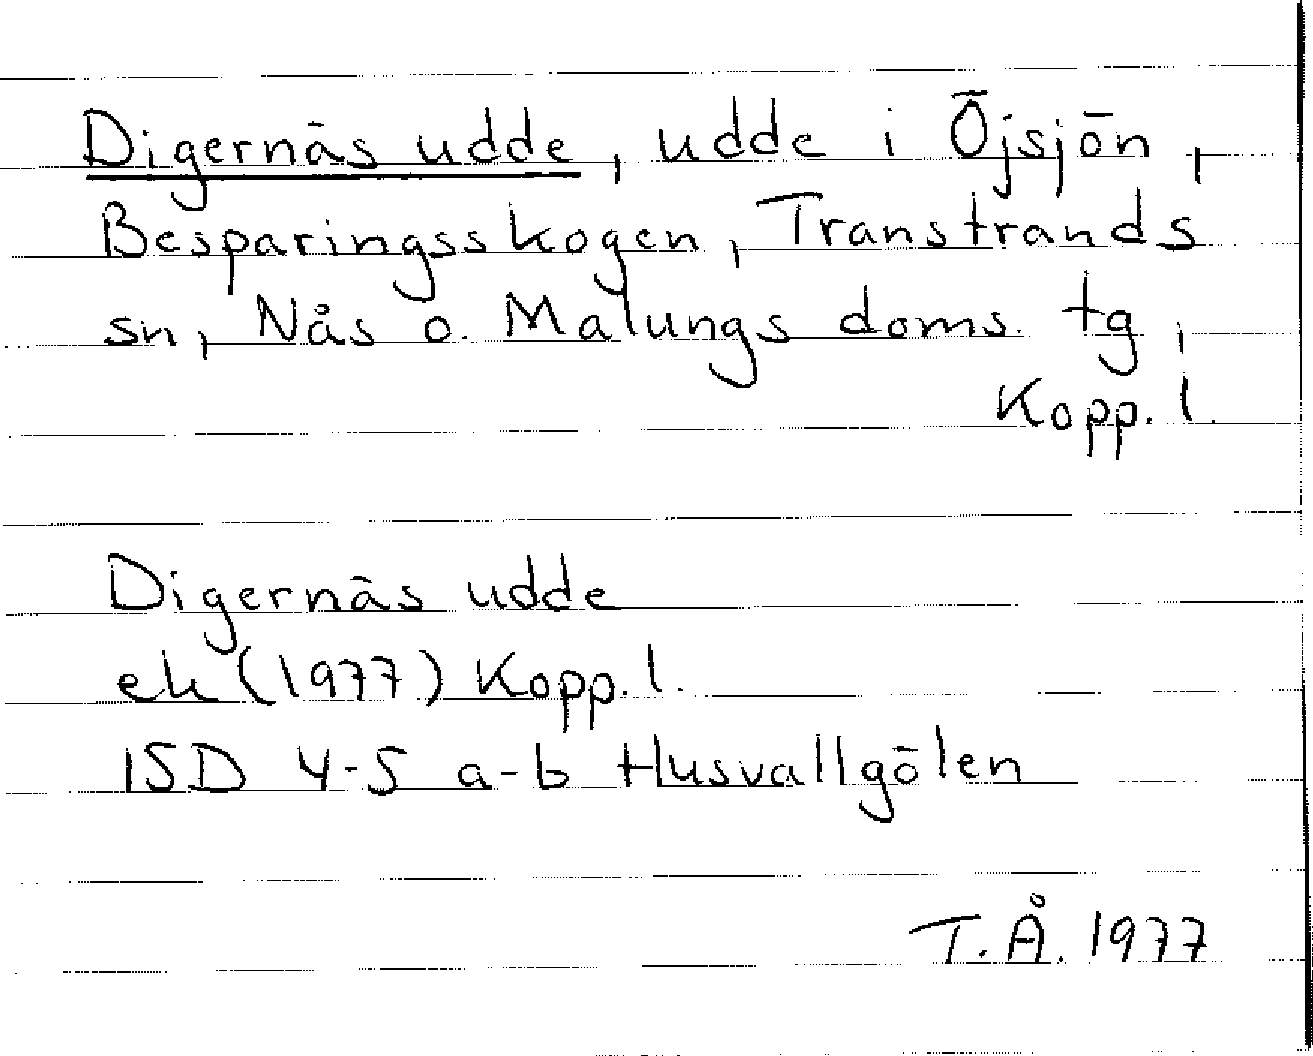 Digernäs udde, udde i Öjsjön,
Besparingsskogen, Transtrands
sn, Nås o. Malungs doms. tg,
Kopp. l.
Digernäs udde
ek (1977) Kopp. l.
15D 4-5 a-b Husvallgölen
T.Å. 1977